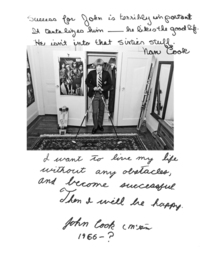 Success for John is terribly important
It tantalizes him — he likes the good life.
He isn't into that sixties stuff.
Nan Cook
I want to live my life
without any obstacles,
and become successful
Then I will be happy.
John Cook
1955-?